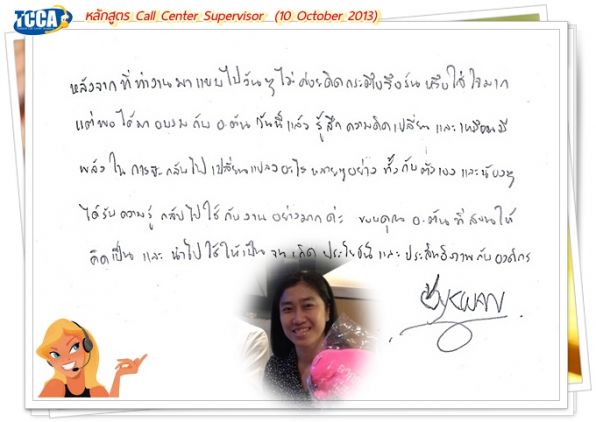 TCCA
หลักสูตร Call Center Supervisor (10 October 2013)
หลังจากที่ทำงานมาแบบไปวันๆ ไม่ค่อยคิดกระตือรือร้น หรือใส่ใจมาก
แต่พอได้มาอบรมกับ อ.ต้น วันนี้แล้ว รู้สึกความคิดเปลี่ยน และเหมือนมี
พลังในการจะกลับไปเปลี่ยนแปลงอะไรหลายๆอย่าง ทั้งกับตัวเองและน้องๆ
ได้รับความรู้ กลับไปใช้กับงานอย่างมากค่ะ ขอบคุณ อ.ต้น ที่สอนให้
คิดเป็น และ นำไปใช้ให้เป็น จนเกิดประโยชน์ และประสิทธิภาพกับองค์กร
KWAN